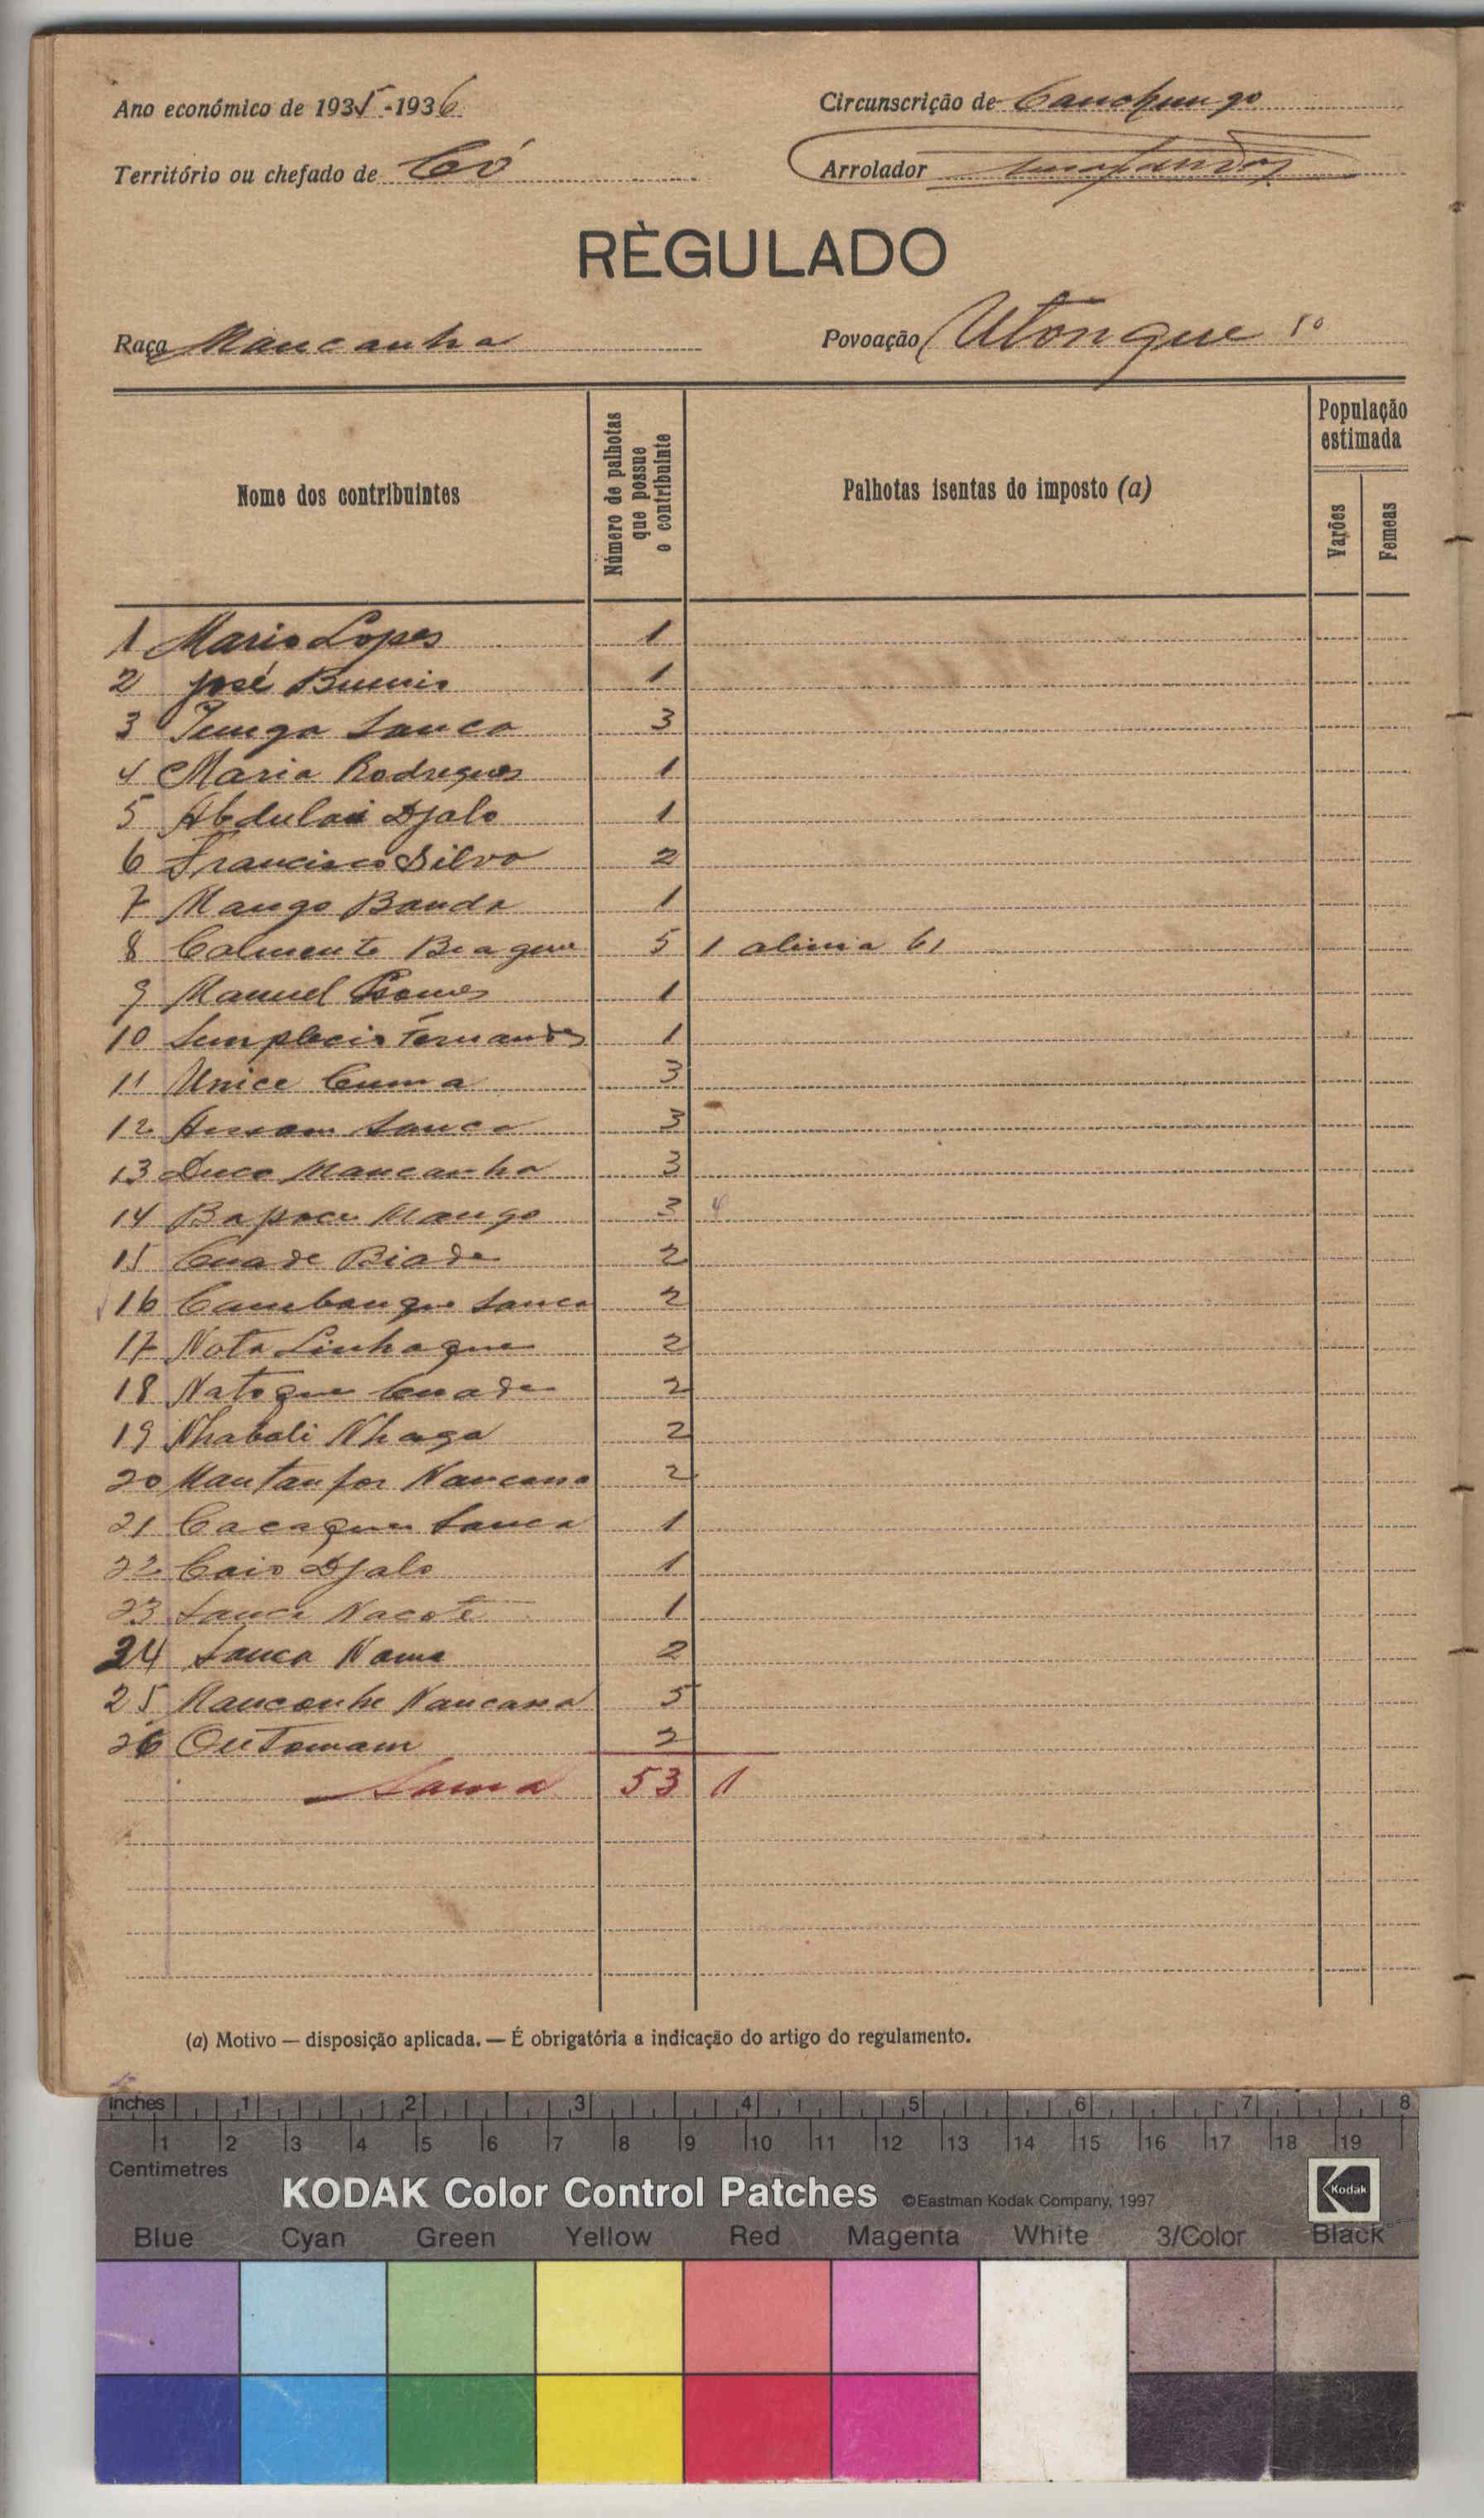 Ano económico de 1935-1936
Circunscrição de Canchungo
Território ou chefado de Có
Arrolador
RÈGULADO
Raça Mancanha
Povoação Utongue 1º
Nome dos contribuintes
Número de palhotas que possue o contribuinte
Palhotas isentas do imposto (a)
População estimada
Varões
Femeas
1 Mario Lopes 1
2 José 1
3 Sanca 3
4 Maria Rodrigues 1
5 Abdulai Djalo 1
6 Francisco Silva 2
7 Mango Banda 1
8 Calmente Biague 5 1 alinia b)
9 Manuel Gomes 1
10 Simplecio Fernandes 1
11 Unice Cuma 3
12 Sanca 3
13 Duco Mancanha 3
14 Bapoce Mango 3 4
15 Cuade Biade 2
16 Cambangue Sanca 2
17 Nota Linhague 2
18 Natogue Cuade 2
19 Nhabali Nhaga 2
20 Mantanfor Nancassa 2
21 Cacague Sanca 1
22 Caio Djalo 1
23 Sanca Nacote 1
24 Sanca Nama 2
25 Mancanhe Nancassa 5
26 2
Soma 53 1
(a) Motivo — disposição aplicada. — É obrigatória a indicação do artigo do regulamento.
inches 1 2 3 4 5 6 7 8
1 2 3 4 5 6 7 8 9 10 11 12 13 14 15 16 17 18 19
Centimetres
KODAK Color Control Patches ©Eastman Kodak Company, 1997 Kodak
Blue Cyan Green Yellow Red Magenta White 3/Color Black